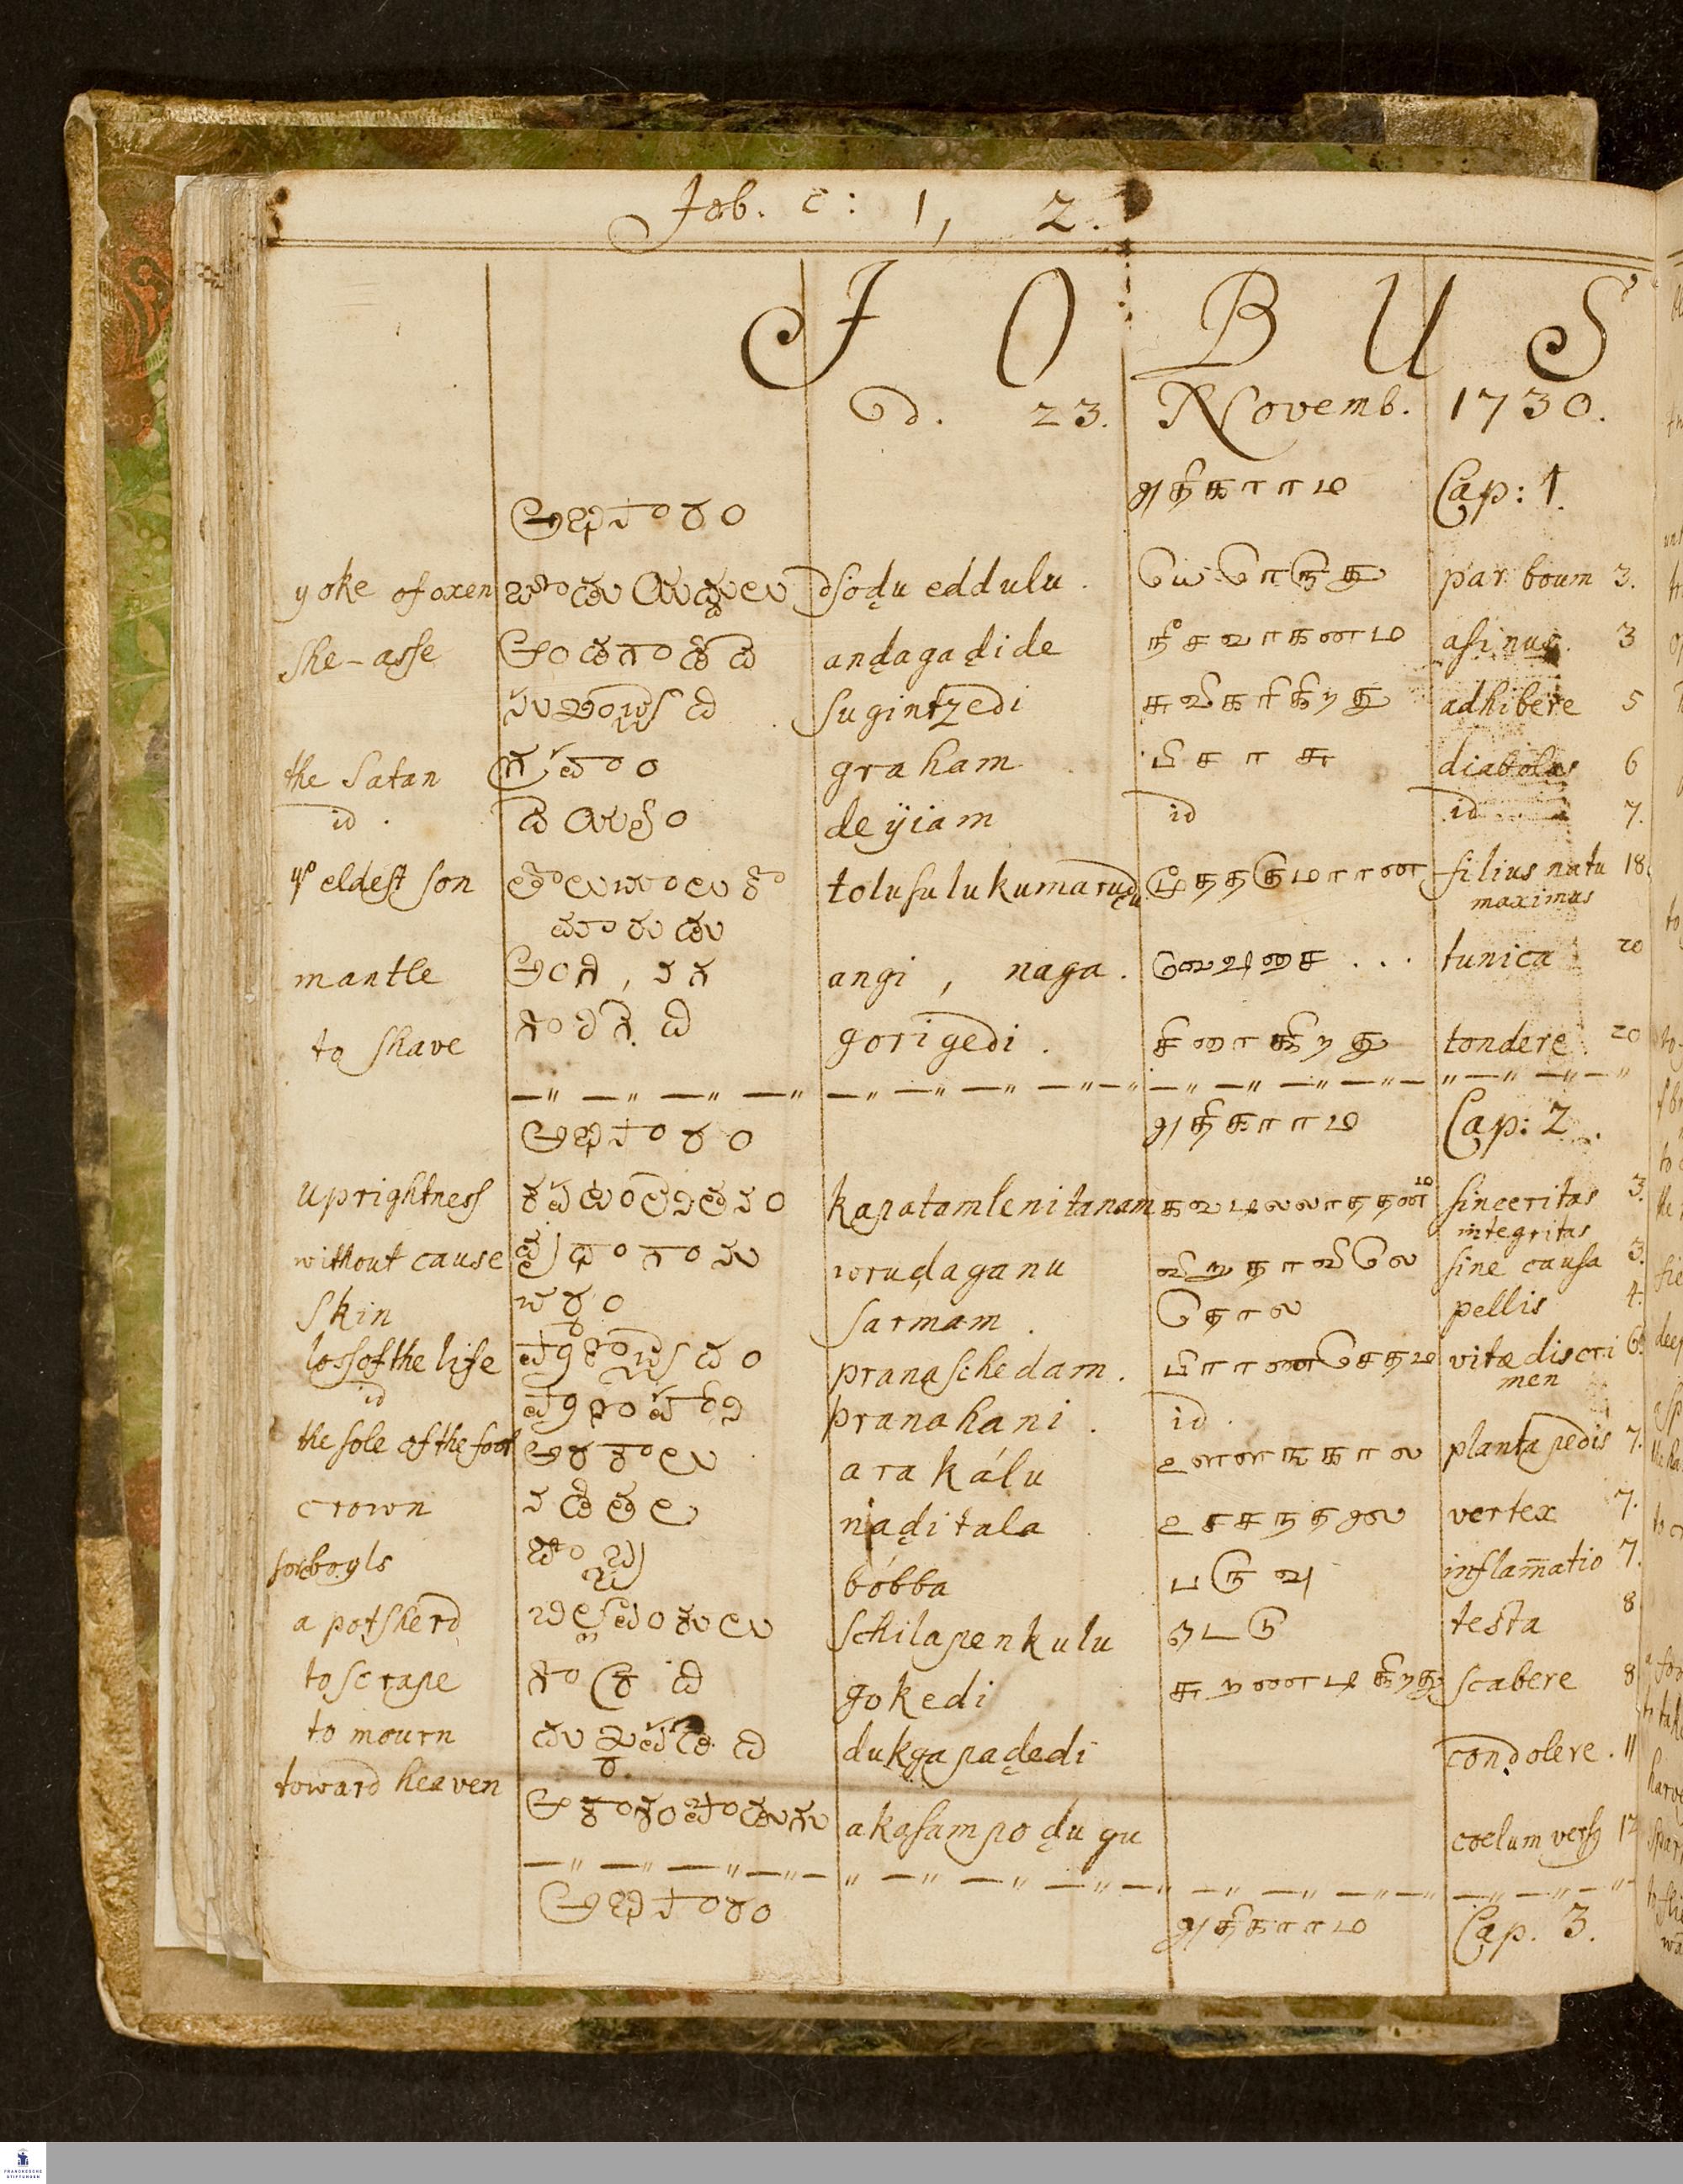 Job. c: 1, 2.
J O B U S
d. 23. Novemb. 1730.
అధికారం அதிகாரம Cap: 1.
yoke of oxen జోడు యెద్దులు dsoḍu eddulu. par boum 3.
she-asse anḍagaḍide நீசவாகனம asinus. 3
sugintzedi சுவிகரிகிறது adhibere 5
the Satan గ్రహం graham பிசாசு diabolus 6
id. దెయ్యం deÿiam id id 7.
ye eldest son తోలుసులు కు tolusulukumaruḍu மூததகுமாரன filius natu 18.
మారుడు maximus
mantle అంగి, నగ angi, naga. ... tunica 20
to shave గొరిగేది gorigedi. சிரைகிறது tondere. 20
అధికారం அதிகாரம Cap: 2.
uprightness కపటంలేనితనం kapatamlenitanam கவடிலலாததனம sinceritas 3.
integritas
without cause వృధాగాను wruḍaganu விறுதாவிலே sine causa 3.
skin చర్మం sarmam. தோல pellis 4.
loss of the life ప్రాణచ్ఛేదం pranaschedam. பிராணசேதம vitæ discri 6.
id men
ప్రాణహాని pranahani. id.
the sole of the foot అరకాలు arakálu உளளஙகால planta pedis 7.
crown నడితల naḍitala உசசநதலை vertex 7.
sore boyls బొబ్బ bóbba பருவு inflam̄atio 7.
a potsherd చిల్లపెంకులు schilapenkulu ஓடு testa 8
to scrape గోకేది gokedi சுறணடிகிறது scabere 8
to mourn దుఃఖపడేది dukgapaḍedi condolere. 11
toward heaven ఆకాశంపొడుగు akasampoḍugu coelum vers9 12
అధికారం அதிகாரம Cap. 3.
FRANCKESCHE
STIFTUNGEN